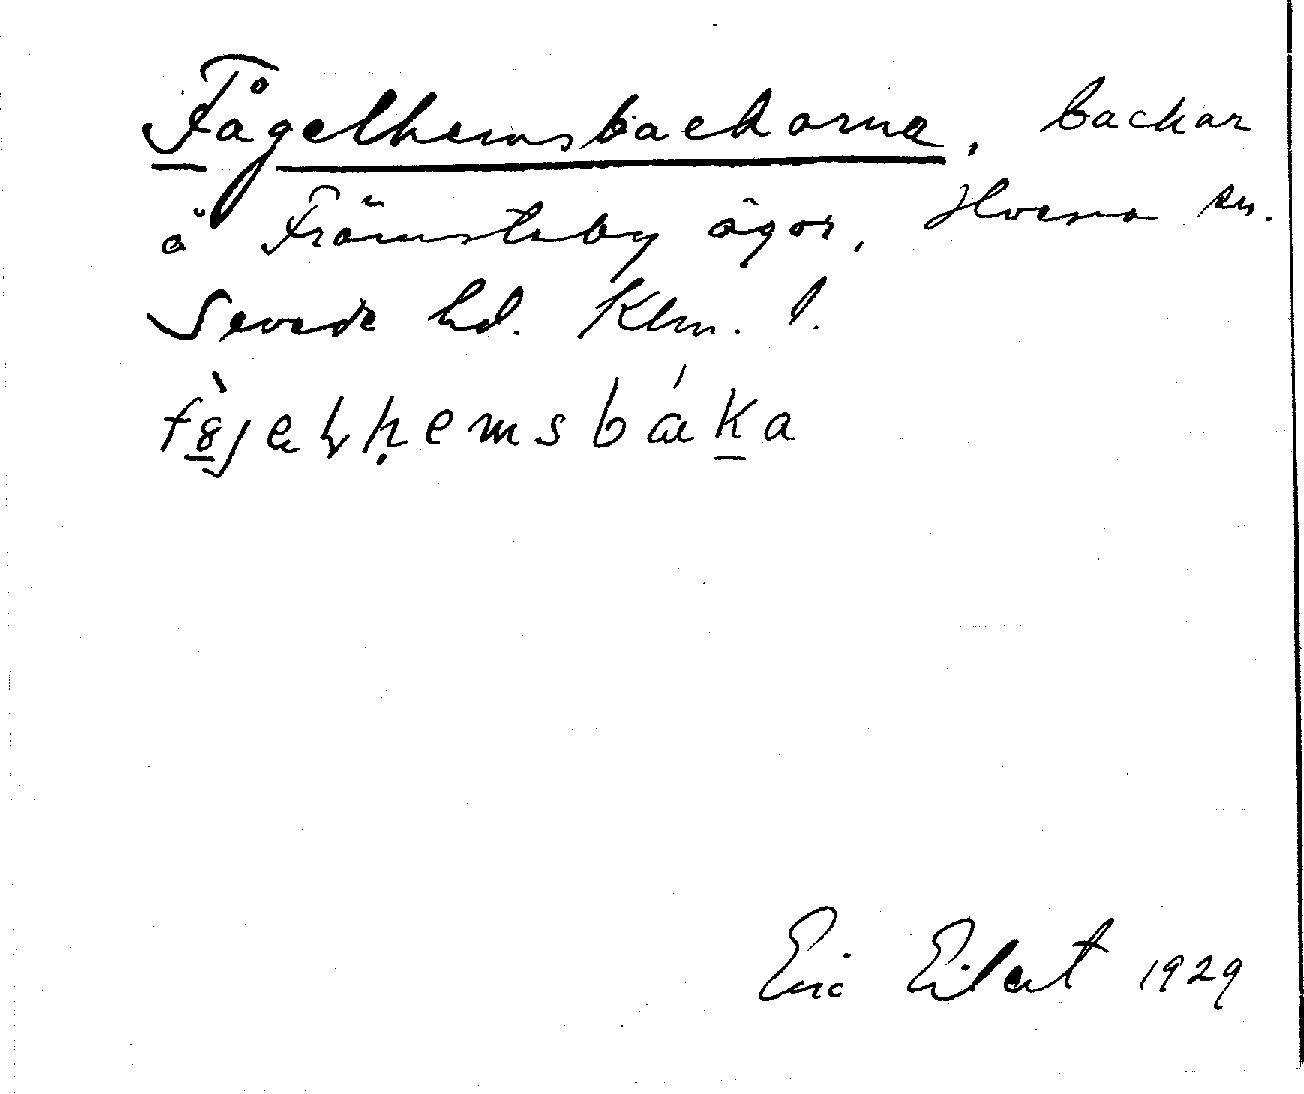 Fågelhemsbackarna, backar
å Främsteby ägor, Hvena sn.
Sevede hd. Klm. l.
Eric Eilert 1929